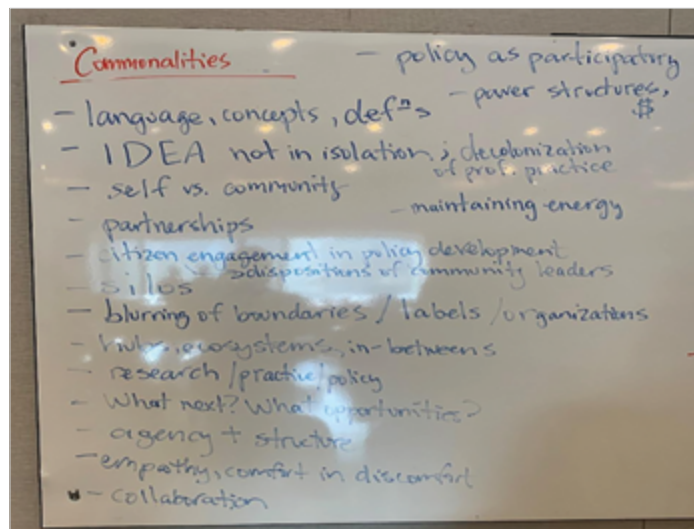 Commonalities
- policy as participatory
- power structures, $
- language, concepts, defⁿs
- IDEA not in isolation ; decolonization
of prof. practice
- self vs. community
- maintaining energy
- partnerships
- citizen engagement in policy development
>dispositions of community leaders
- silos
- blurring of boundaries / labels / organizations
- hubs, ecosystems, in-betweens
- research / practice / policy
- What next? What opportunities?
- agency + structure
- empathy, comfort in discomfort
- collaboration